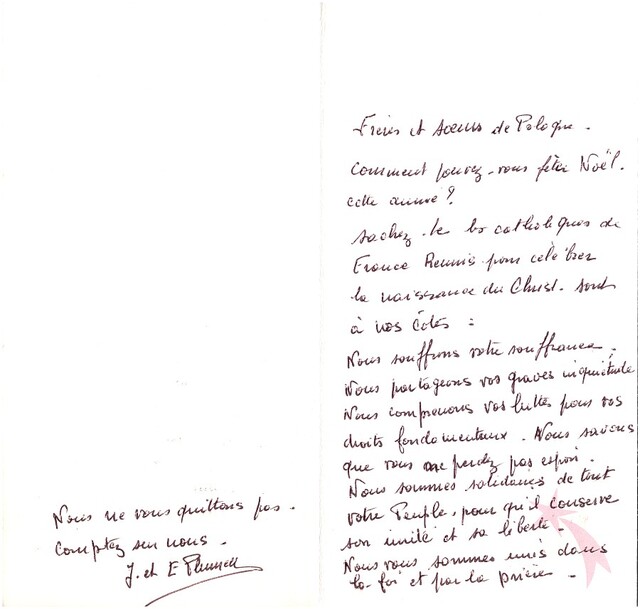 Frères et sœurs de Pologne.
Comment pouvez-vous fêter Noël.
cette année ?
Sachez-le les catholiques de
France Réunis pour célébrer
la naissance du Christ. sont
à vos côtés :
Nous souffrons votre souffrance.
Nous partageons vos graves inquiétudes
Nous comprenons vos luttes pour vos
droits fondamentaux. Nous savons
que vous ne perdez pas espoir.
Nous sommes solidaires de tout
votre Peuple, pour qu'il conserve
son unité et sa liberté.
Nous vous sommes unis dans
la foi et par la prière.
Nous ne vous quittons pas.
Comptez sur nous.
J. et E